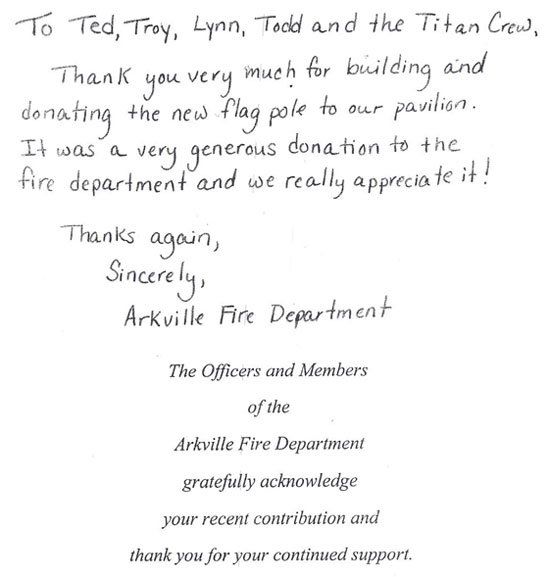 To Ted, Troy, Lynn, Todd and the Titan Crew,
Thank you very much for building and
donating the new flag pole to our pavilion.
It was a very generous donation to the
fire department and we really appreciate it!
Thanks again,
Sincerely,
Arkville Fire Department
The Officers and Members
of the
Arkville Fire Department
gratefully acknowledge
your recent contribution and
thank you for your continued support.